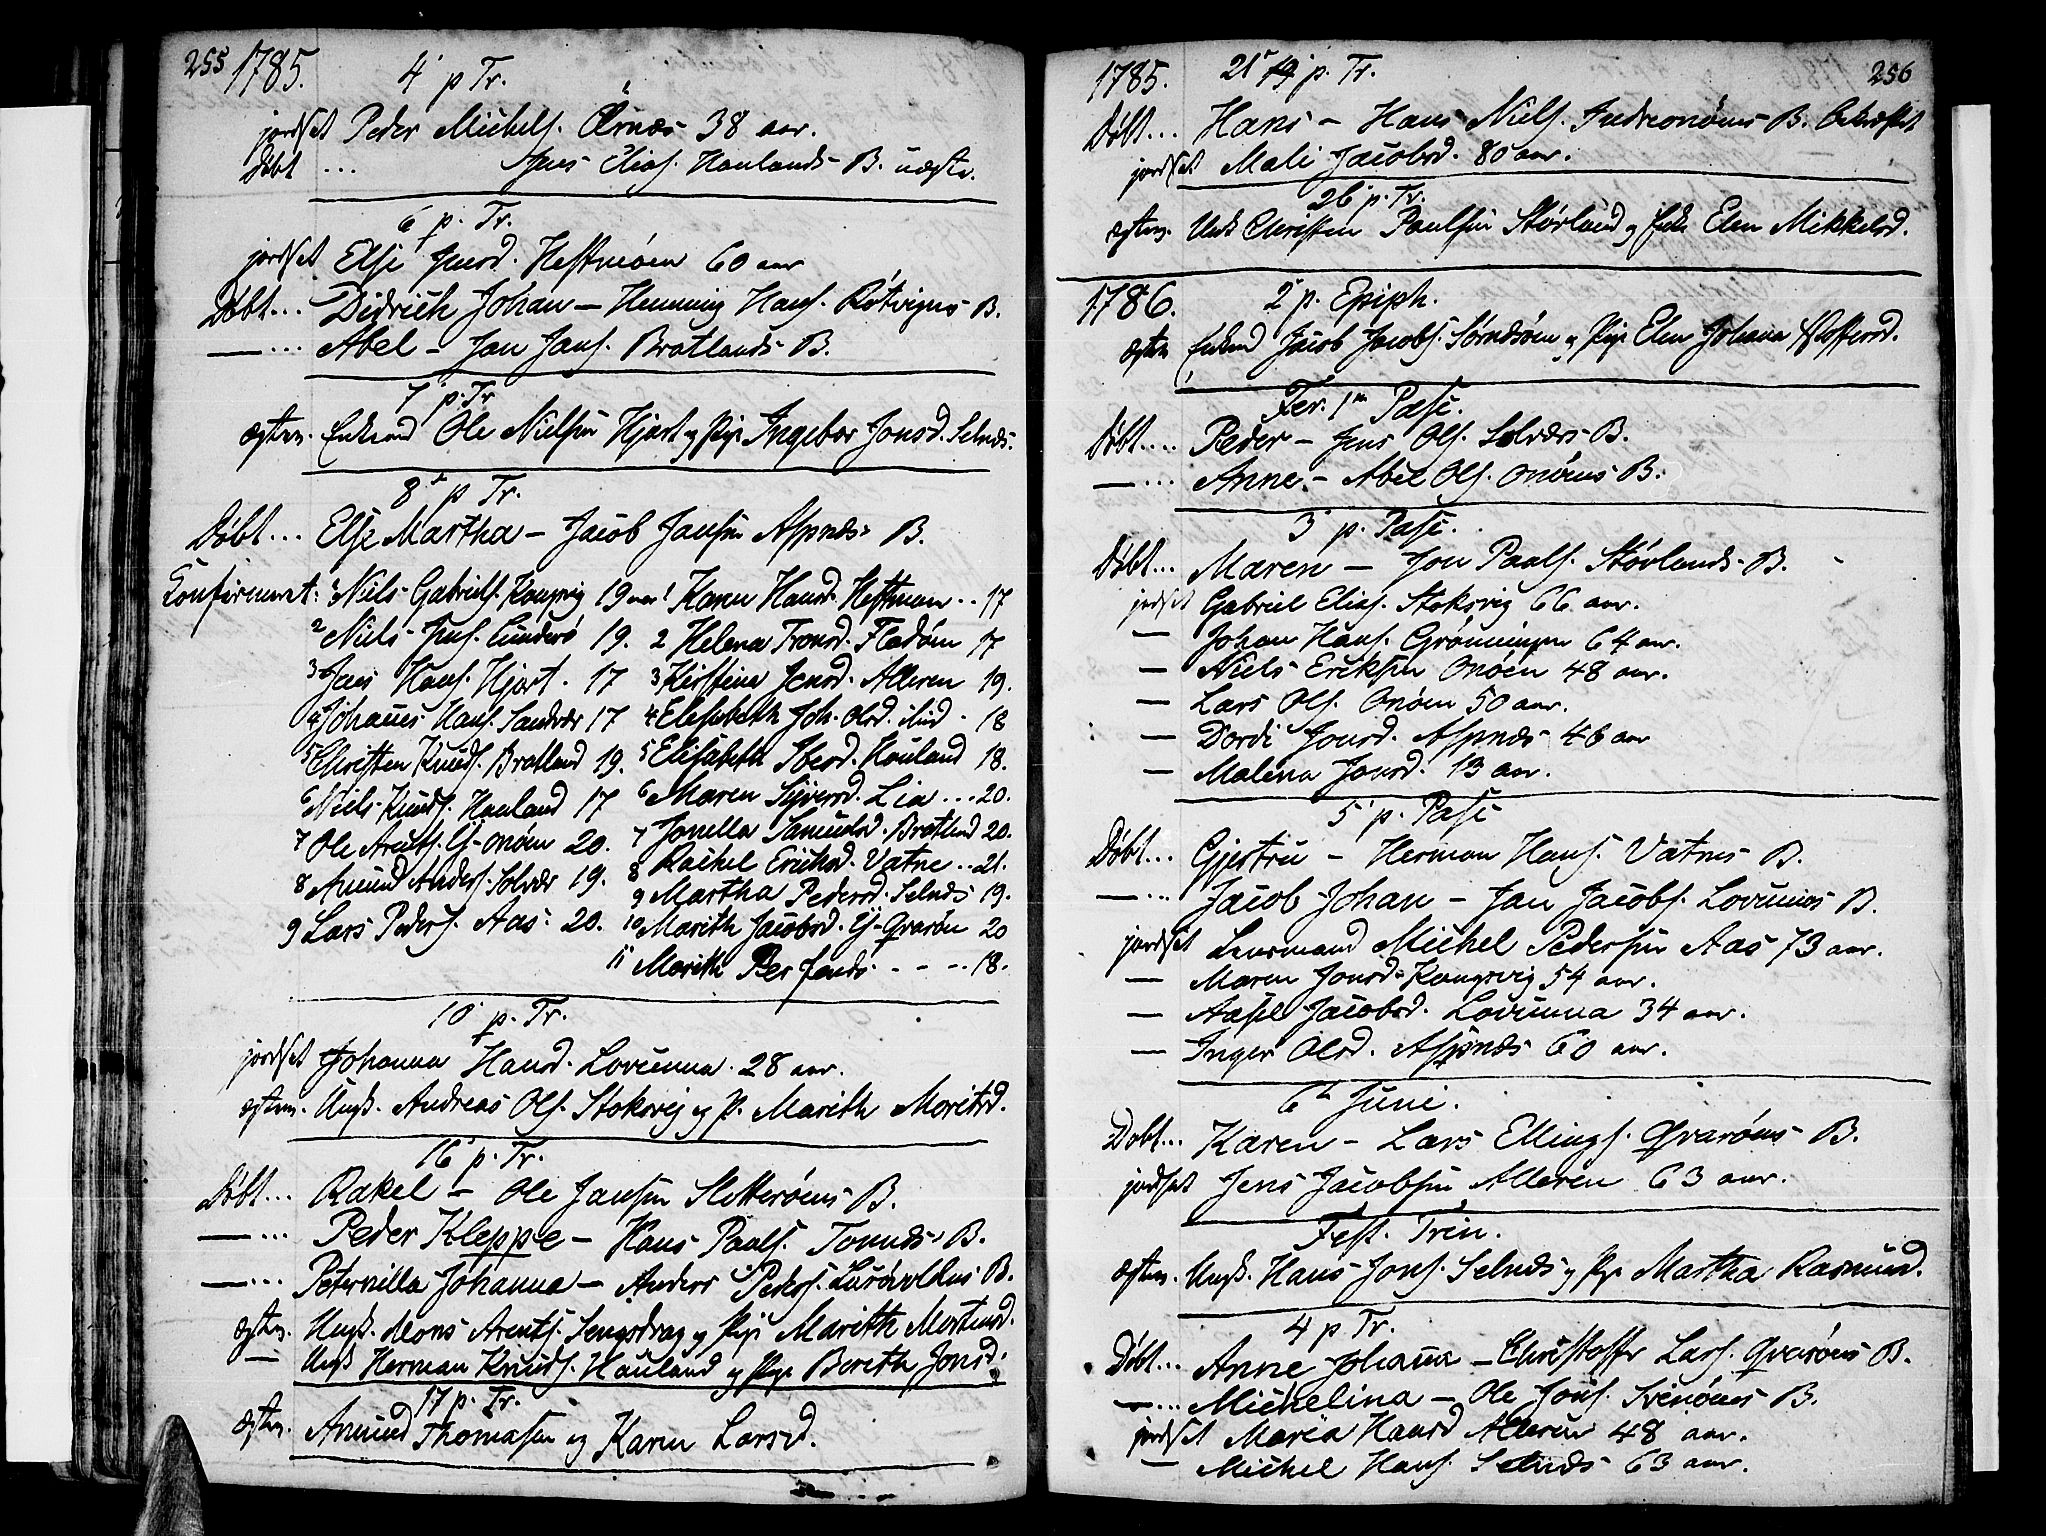 255 1785. 4 p Tr.
jordset Peder Michels. Ørnæs 38 aar.
Døbt ... Elias. Haulands B.
6 p. Tr.
jordset Else Jensd. Hestmøen 60 aar
Døbt ... Didrich Johan – Henning Hans. Rötvigens B.
— ... Abel – Jan Jans. Bratlands B.
7 p. Tr
ægtev. Enkemd Ole Nielsen Hjart og Pige Ingebor Jonsd. Selnæs.
8 p Tr.
Døbt ... Else Martha – Jacob Jansen Aspnæs B.
Confirmeret: 1 Niels Gabriels. Kongsvig 19 aar 1 Karen Hansd. Hestmøen .. 17
2 Niels Jens. Lunderø 19. 2 Helena Tronsd. Fladøen 17
3 Jens Hans. Hjart. 17 3 Kirstina Jensd. Alleren 19.
4 Johannes Hans. Sandvær 17 4 Elisabeth Joh. Olsd. 18
5 Christen Knuds. Bratland 19. 5 Elisabeth Ibersd. Hauland 18.
6 Niels Knuds. Hauland 17 6 Maren Siversd. Lia ... 20.
7 Ole Arents. Y-onøen 20. 7 Jonella Samuelsd. Bratland 20.
8 Amund Anders. Solvær 19. 8 Rachel Erichsd. Vatne .. 21.
9 Lars Peders. Aas 20. 9 Martha Pedersd. Selnæs 19.
10 Marith Jacobsd. Y-Qvarøen 20
11 Marith Persd. - - - 18.
10 p. Tr.
jordset Johanna Hansd. Lovunna. 28 aar.
ægtev. Ungk. Andreas Ols. Stoksvig og P. Marith Moritsd.
16 p. Tr.
Døbt ... Rakel – Ole Jansen Sletterøens B.
— ... Peder Kleppe – Hans Paals. Tonnæs B.
— ... Peternilla Johanna – Anders Peders. Lurøvoldens B.
ægtev. Ungk. Mons Arents. Sengsdrag og Pige Marith Mortensd.
— Ungk Herman Knuds. Hauland og Pige Bereth Jonsd.
17 p. Tr.
ægtev. Amund Thomasen og Karen Larsd.
1785. 21 p. Tr. 256
Døbt ... Hans – Hans Niels. Indreonøens B.
jordset Mali Jacobsd. 80 aar.
26 p. Tr.
ægtev. Ungk Christen Paulsen Størland og Enke Elen Mikkelsd.
1786. 2 p. Epiph.
ægtev Enkemd Jacob Jacobs. Sørnæsøen og Pige Elen Johana Stoffersd.
Fer. 1 Pasc.
Døbt .... Peder – Jens Ols. Solværs B.
— ... Anne – Abel Ols. Onøens B.
3 p. Pasc.
Døbt ... Maren – Jon Paals. Størlands B.
jordset Gabriel Elias. Stoksvig 66 aar.
— Johan Hans. Grønningen 64 aar.
— Niels Eriksen Onøen 48 aar.
— Lars Ols. Onøen 50 aar.
— Dordi Jonsd. Aspnæs 46 aar
— Malena Jonsd. 13 aar.
5 p. Pasc
Døbt ... Gjertru – Herman Hans. Vatnes B.
— ... Jacob Johan – Jan Jacobs. Lovunnas B.
jordset Lensmand Michel Pedersen Aas 73 aar.
— Maren Jonsd. Kongsvig 54 aar.
— Aasel Jacobsd. Lovunna 34 aar.
— Inger Olsd. Aspnæs 60 aar.
6 Juni.
Døbt ... Karen – Lars Ellings. Qvarøens B.
jordset Jens Jacobsen Alleren 63 aar.
Fest. Trin.
ægtev. Ungk. Hans Jons. Selnæs og Pige Martha Rasmusd.
4 p Tr.
Døbt ... Anne Johanna – Christoffer Lars. Qvarøens B.
— ... Michelina – Ole Jons. Svenøens B.
jordset Maria Hansd Alleren 48 aar.
— Michel Hans. Selnæs 63 aar.